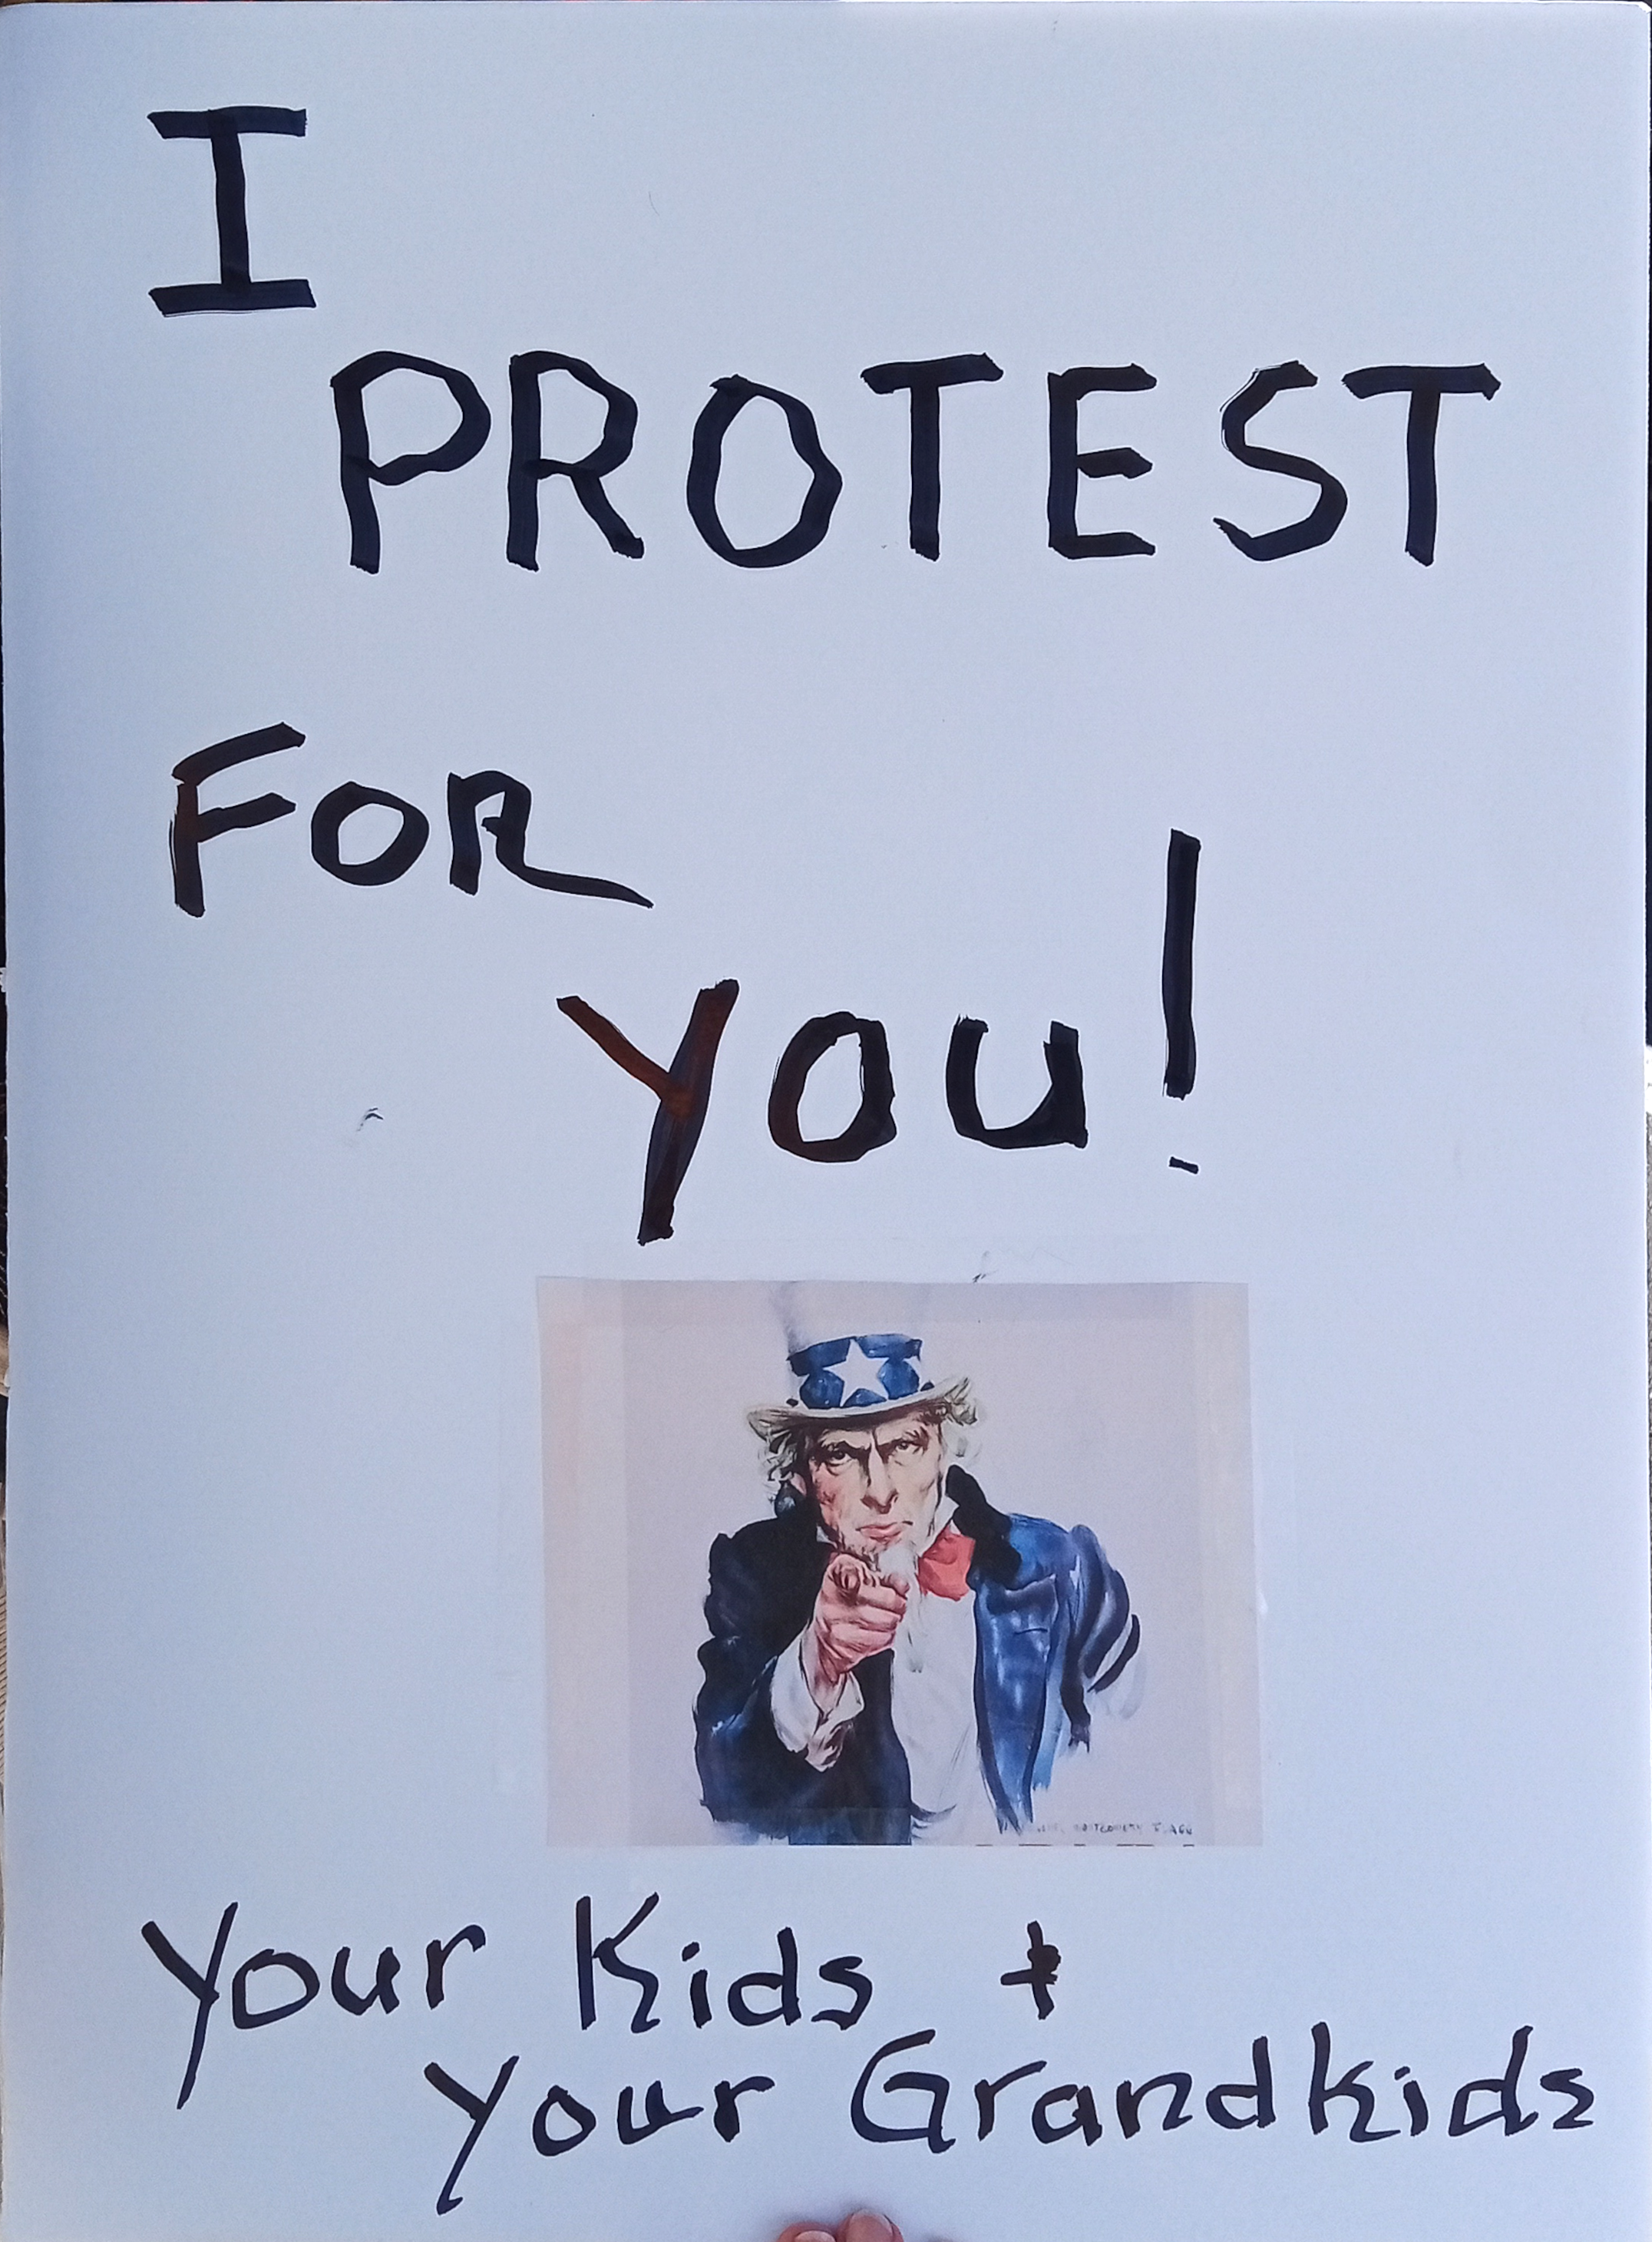 I
PROTEST
FOR
you!
Your Kids +
Your Grandkids